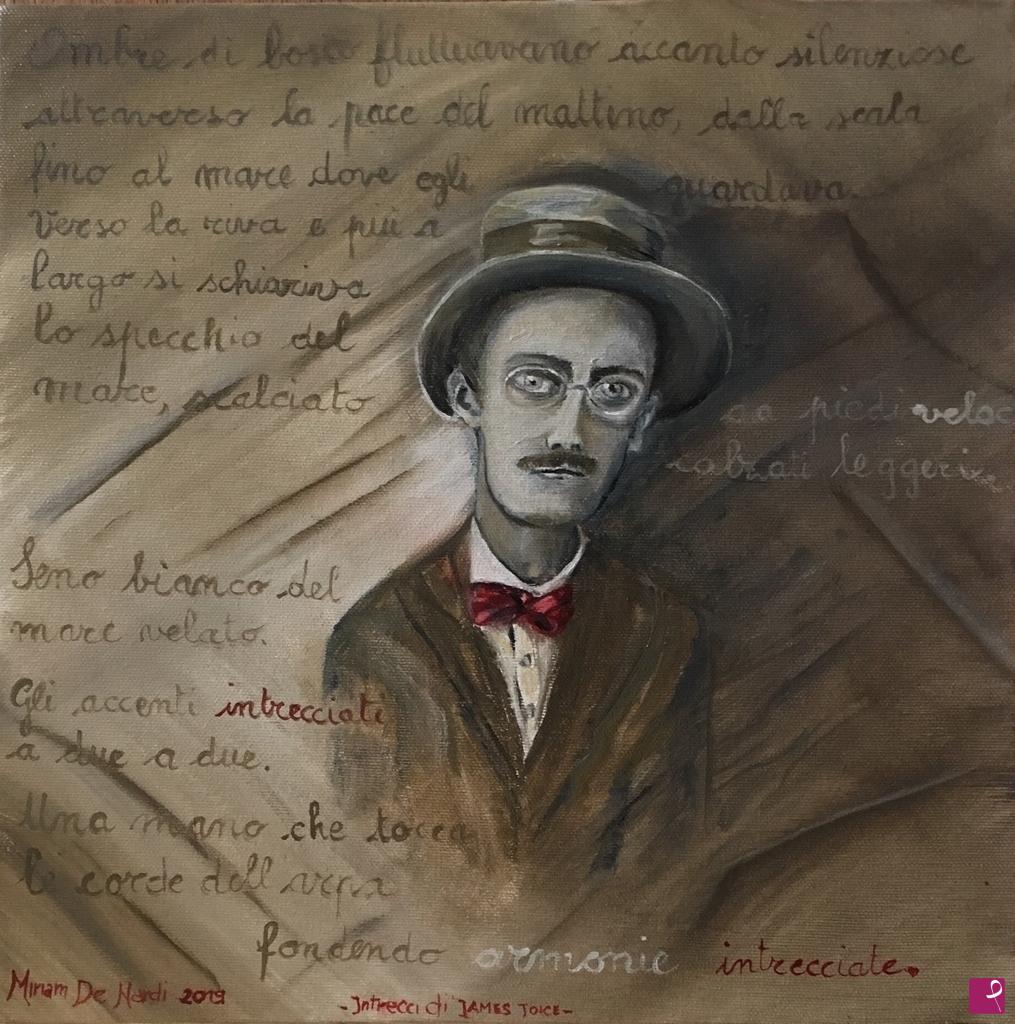 Ombre di bosco fluttuavano accanto silenziose
attraverso la pace del mattino, dalla scala
fino al mare dove egli guardava.
Verso la riva e più a
largo si schiariva
lo specchio del
mare, scalciato
da piedi veloc
calzati leggeri
Seno bianco del
mare velato.
Gli accenti intrecciati
a due a due.
Una mano che tocca
le corde dell'arpa
fondendo armonie intrecciate.
Miriam De Nardi 2019
-Intrecci di JAMES JOICE-